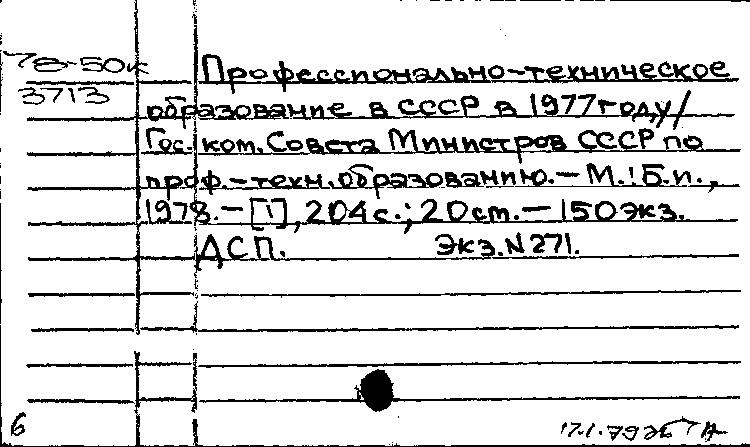 78-50к
3713
Профессионально-техническое
образование в СССР в 1977 году /
Гос. ком. Совета Министров СССР по
проф.-техн. образованию. — М.: Б.и.,
1978. — [1], 204 с.; 20 см. — 150 экз.
ДСП. Экз. N 271.
6
17.1.79